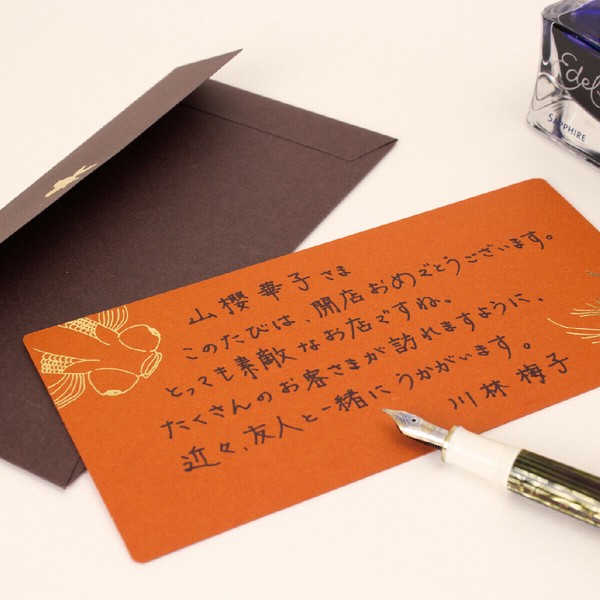 山櫻 華子さま
このたびは、開店おめでとうございます。
とっても素敵なお店ですね。
たくさんのお客さまが訪れますように。
近々、友人と一緒にうかがいます。
川林 梅子
Edel
SAPPHIRE